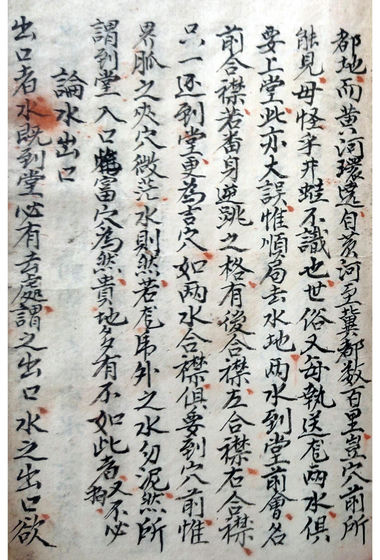 都地而黄河環遶自黄河至冀都数百里豈穴前所
能見毋怪乎井蛙不識也世俗又每執送龙两水俱
要上堂此亦大誤惟順局去水地两水到堂前會名
前合襟若番身逆跳之格有後合襟左合襟右合襟
只一还到堂更為吉穴如两水合襟俱要到穴前惟
界脉之夾穴微茫水則然若龙帋外之水勿泥然所
謂到堂入口惟富穴為然貴地多有不如此者又不必拘
論水出口
出口者水既到堂必有去處謂之出口水之出口欲